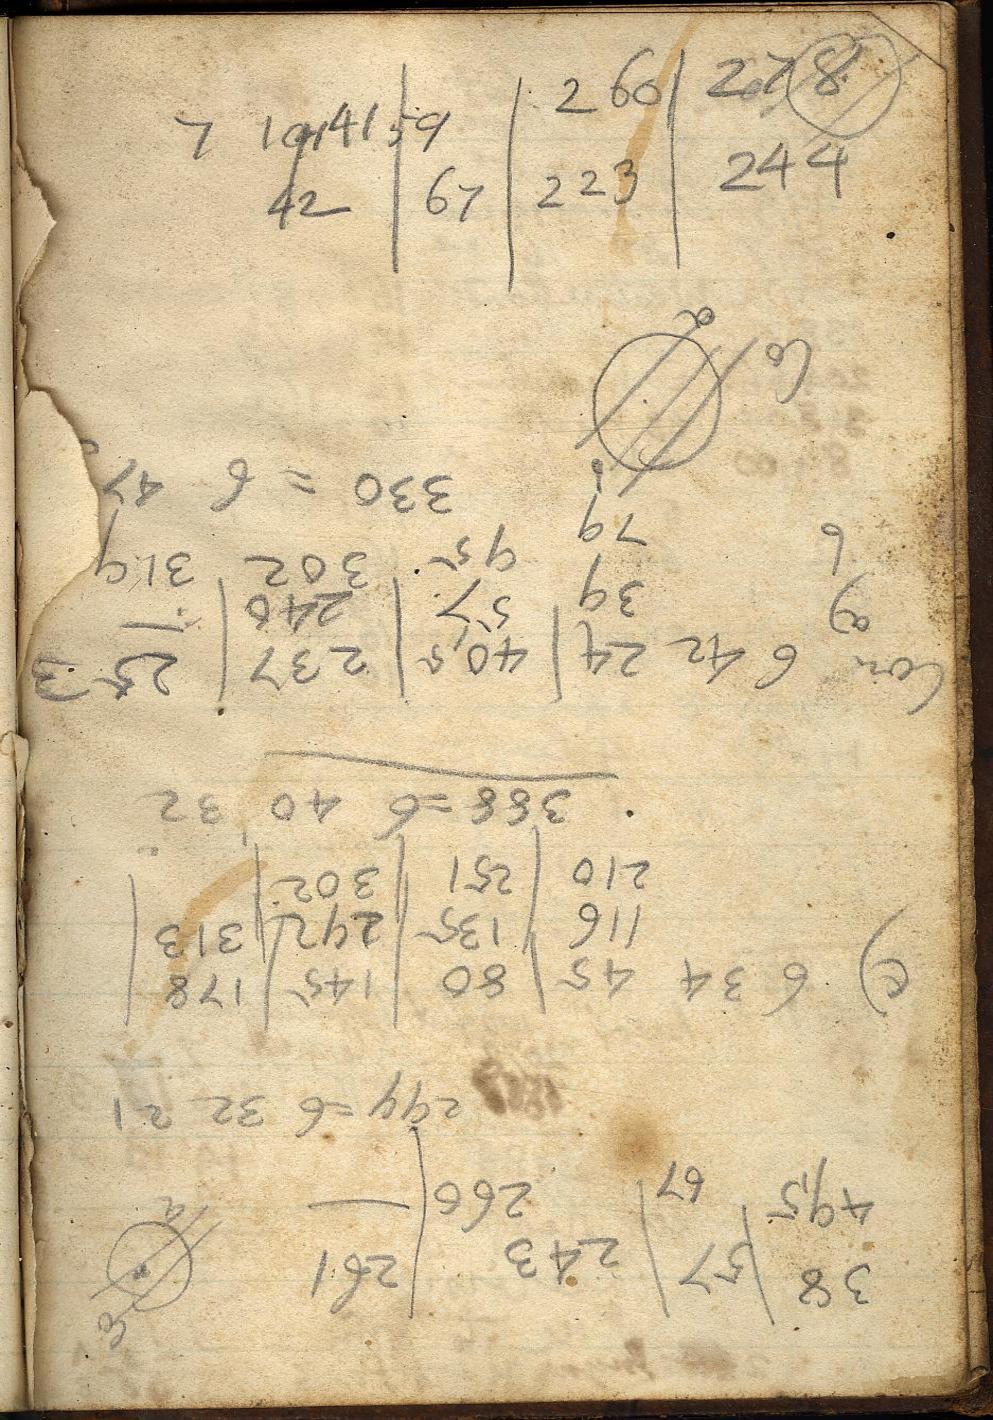 7 19 41 59 | 260 | 278
42 | 67 | 223 | 244
38 | 57 | 243 | 261
49,5 | 67 | 266 | —
299 = 6 32 21
e) 6 34 45 | 80 | 145 | 178
116 | 135 | 292 | 313
210 | 251 | 302
388 = 6 40 32
6 42 24 | 40,5 | 237 | 253
a) 39 | 57 | 246 | —
b 79 95 302 319
330 = 6 47
a